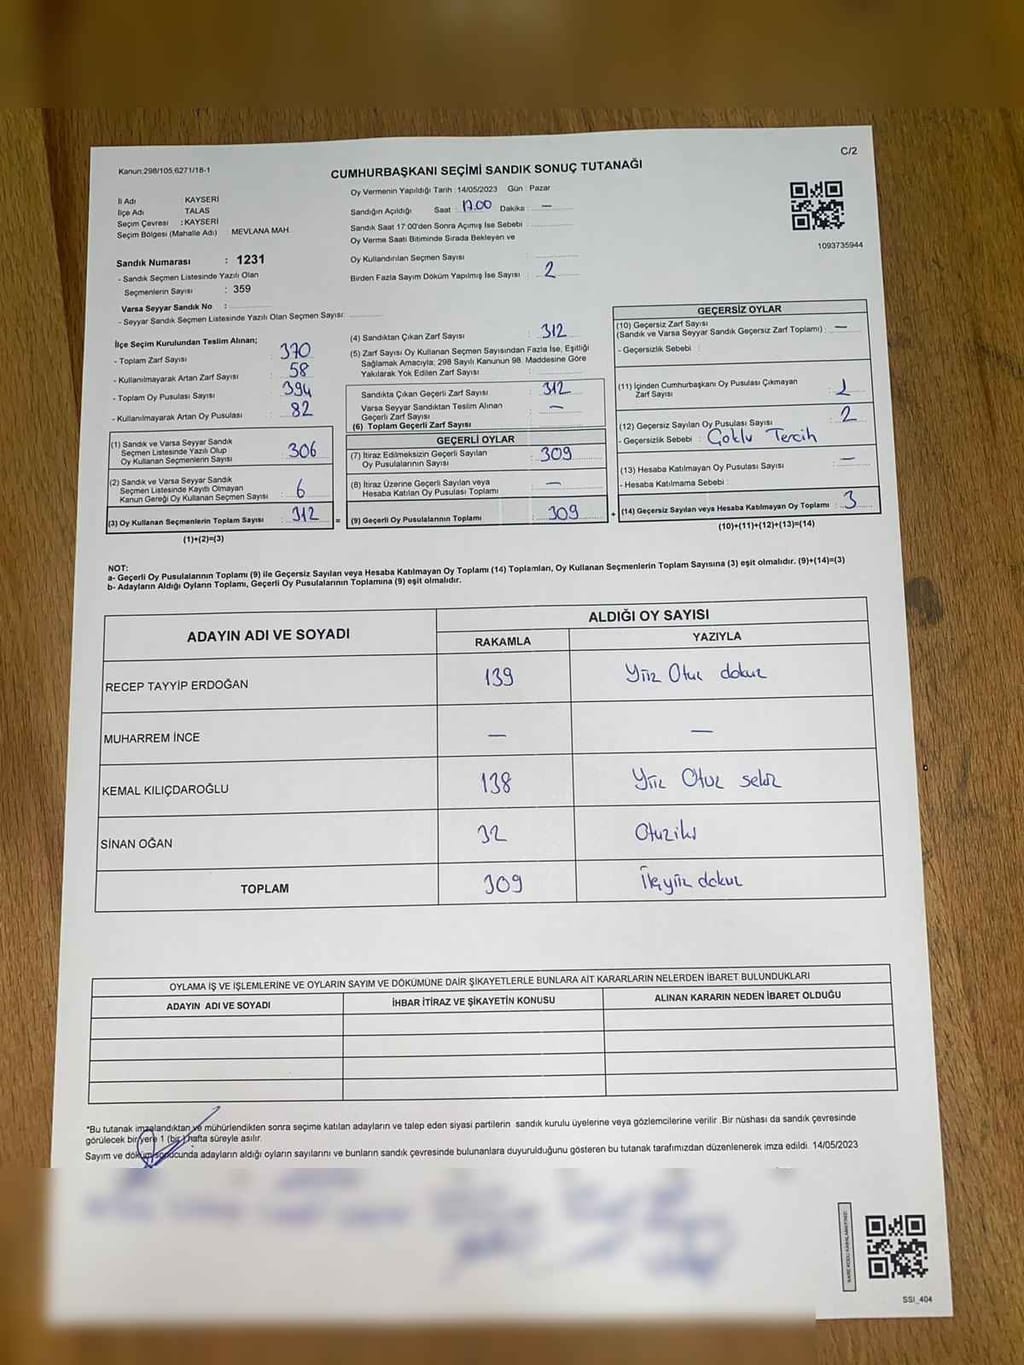 C/2
Kanun:298/105,6271/18-1
CUMHURBAŞKANI SEÇİMİ SANDIK SONUÇ TUTANAĞI
İl Adı : KAYSERİ
İlçe Adı TALAS
Seçim Çevresi : KAYSERİ
Seçim Bölgesi (Mahalle Adı) : MEVLANA MAH.
Oy Vermenin Yapıldığı Tarih : 14/05/2023 Gün : Pazar
Sandığın Açıldığı Saat : 17.00 Dakika : —
Sandık Saat 17:00'den Sonra Açımış İse Sebebi :
Oy Verme Saati Bitiminde Sırada Bekleyen ve
Oy Kullandırılan Seçmen Sayısı :
Birden Fazla Sayım Döküm Yapılmış İse Sayısı : 2
1093735944
Sandık Numarası : 1231
- Sandık Seçmen Listesinde Yazılı Olan
Seçmenlerin Sayısı : 359
Varsa Seyyar Sandık No :
- Seyyar Sandık Seçmen Listesinde Yazılı Olan Seçmen Sayısı:
İlçe Seçim Kurulundan Teslim Alınan;
- Toplam Zarf Sayısı : 370
- Kullanılmayarak Artan Zarf Sayısı : 58
- Toplam Oy Pusulası Sayısı : 394
- Kullanılmayarak Artan Oy Pusulası : 82
(1) Sandık ve Varsa Seyyar Sandık
Seçmen Listesinde Yazılı Olup
Oy Kullanan Seçmenlerin Sayısı : 306
(2) Sandık ve Varsa Seyyar Sandık
Seçmen Listesinde Kayıtlı Olmayan
Kanun Gereği Oy Kullanan Seçmen Sayısı : 6
(3) Oy Kullanan Seçmenlerin Toplam Sayısı : 312 =
(1)+(2)=(3)
(4) Sandıktan Çıkan Zarf Sayısı : 312
(5) Zarf Sayısı Oy Kullanan Seçmen Sayısından Fazla İse, Eşitliği
Sağlamak Amacıyla; 298 Sayılı Kanunun 98. Maddesine Göre
Yakılarak Yok Edilen Zarf Sayısı :
Sandıkta Çıkan Geçerli Zarf Sayısı : 312
Varsa Seyyar Sandıktan Teslim Alınan
Geçerli Zarf Sayısı : —
(6) Toplam Geçerli Zarf Sayısı :
GEÇERLİ OYLAR
(7) İtiraz Edilmeksizin Geçerli Sayılan
Oy Pusulalarının Sayısı : 309
(8) İtiraz Üzerine Geçerli Sayılan veya
Hesaba Katılan Oy Pusulası Toplamı : —
(9) Geçerli Oy Pusulalarının Toplamı : 309 +
GEÇERSİZ OYLAR
(10) Geçersiz Zarf Sayısı
(Sandık ve Varsa Seyyar Sandık Geçersiz Zarf Toplamı) : —
- Geçersizlik Sebebi :
(11) İçinden Cumhurbaşkanı Oy Pusulası Çıkmayan
Zarf Sayısı : 1
(12) Geçersiz Sayılan Oy Pusulası Sayısı : 2
- Geçersizlik Sebebi : Çoklu Tercih
(13) Hesaba Katılmayan Oy Pusulası Sayısı : —
- Hesaba Katılmama Sebebi :
(14) Geçersiz Sayılan veya Hesaba Katılmayan Oy Toplamı : 3
(10)+(11)+(12)+(13)=(14)
NOT:
a- Geçerli Oy Pusulalarının Toplamı (9) ile Geçersiz Sayılan veya Hesaba Katılmayan Oy Toplamı (14) Toplamları, Oy Kullanan Seçmenlerin Toplam Sayısına (3) eşit olmalıdır. (9)+(14)=(3)
b- Adayların Aldığı Oyların Toplamı, Geçerli Oy Pusulalarının Toplamına (9) eşit olmalıdır.
ADAYIN ADI VE SOYADI ALDIĞI OY SAYISI
RAKAMLA YAZIYLA
RECEP TAYYİP ERDOĞAN 139 Yüz Otuz dokuz
MUHARREM İNCE — —
KEMAL KILIÇDAROĞLU 138 Yüz Otuz sekiz
SİNAN OĞAN 32 Otuziki
TOPLAM 309 Üçyüz dokuz
OYLAMA İŞ VE İŞLEMLERİNE VE OYLARIN SAYIM VE DÖKÜMÜNE DAİR ŞİKAYETLERLE BUNLARA AİT KARARLARIN NELERDEN İBARET BULUNDUKLARI
ADAYIN ADI VE SOYADI İHBAR İTİRAZ VE ŞİKAYETİN KONUSU ALINAN KARARIN NEDEN İBARET OLDUĞU
*Bu tutanak imzalandıktan ve mühürlendikten sonra seçime katılan adayların ve talep eden siyasi partilerin sandık kurulu üyelerine veya gözlemcilerine verilir. Bir nüshası da sandık çevresinde
görülecek bir yere 1 (bir) hafta süreyle asılır.
Sayım ve döküm sonucunda adayların aldığı oyların sayılarını ve bunların sandık çevresinde bulunanlara duyurulduğunu gösteren bu tutanak tarafımızdan düzenlenerek imza edildi. 14/05/2023
SSI_404